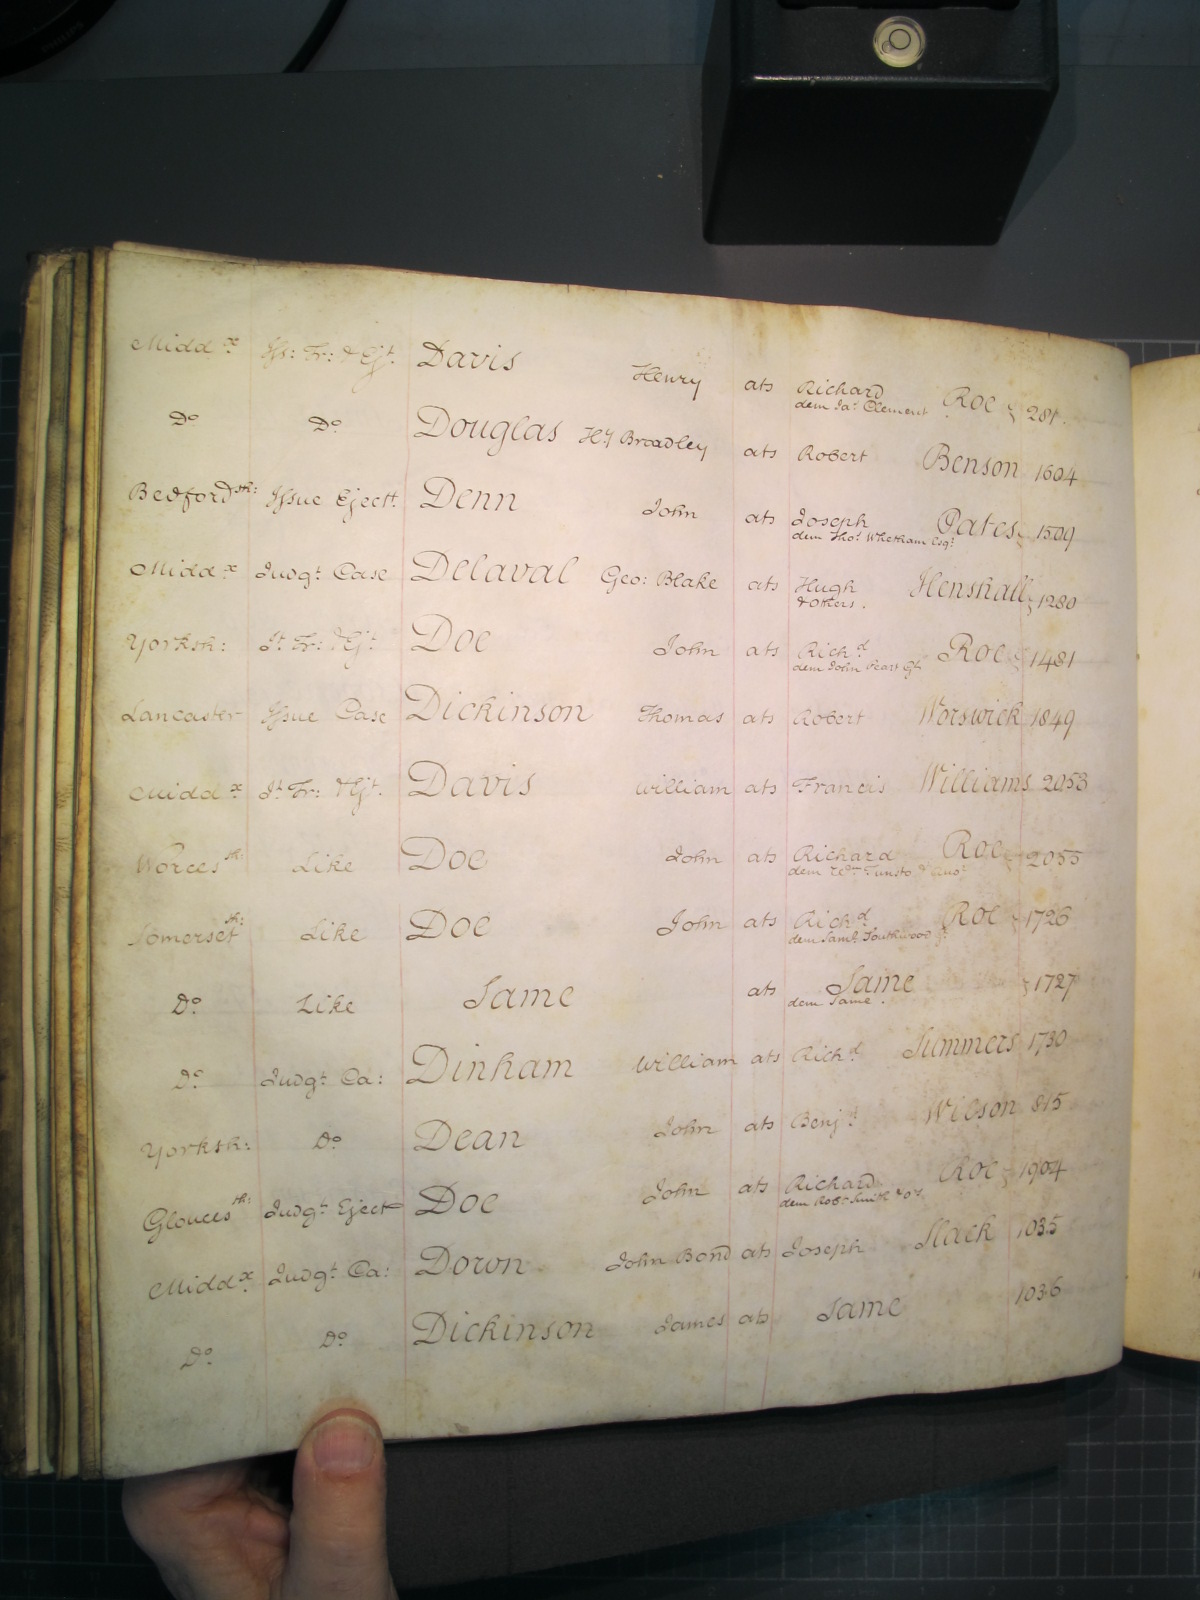 Midd.x Iss: Tr: & Ejt. Davis Henry ats Richard Roe 281.
dem Jas. Clement
Do. Do. Douglas Hy. Broadley ats Robert Benson 1604
Bedfordsh: Issue Ejectt. Denn John ats Joseph Oates 1509
dem Thos. Whetham Esqr.
Midd.x Judgt. Case Delaval Geo: Blake ats Hugh Henshall 1280
& others.
Yorksh: Jt. Tr: & Ejt. Doe John ats Richd. Roe 1481
dem John
Lancaster Issue Case Dickinson Thomas ats Robert Worswick 1849
Midd.x Jt. Tr: & Ejt. Davis William ats Francis Williams 2053
Worcessh: Like Doe John ats Richard Roe 2055
dem Wm.
Somersetsh: Like Doe John ats Richd. Roe 1726
dem Saml. Southwood
Do. Like Same ats Same 1727
dem Same.
Do. Judgt. Ca: Dinham William ats Richd. Summers 1730
Yorksh: Do. Dean John ats Benjn. Wilson 815
Gloucessh: Judgt. Eject Doe John ats Richard Roe 1904
dem Robt. Smith & or.
Midd.x Judgt. Ca: Down John Bond ats Joseph Slack 1035
Do. Do. Dickinson James ats Same 1036